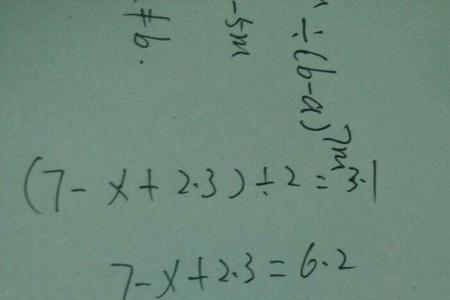 ≠ b.
-5m
÷(b-a)
7m
(7-x+2.3)÷2=3.1
7-x+2.3=6.2